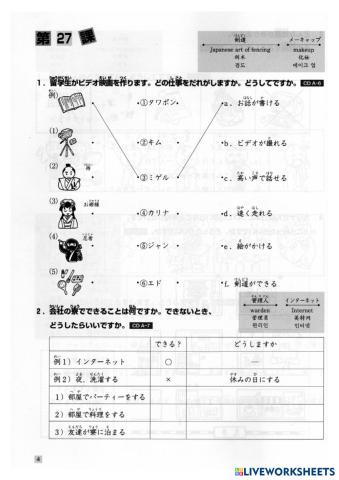 第 27 課
剣道 メーキャップ
Japanese art of fencing makeup
剑术 化妆
검도 메이크 업
1. 留学生がビデオ映画を作ります。どの仕事をだれがしますか。どうしてですか。 CD A-6
例) ・①タワポン・ ・a. お話が書ける
(1) ・②キム・ ・b. ビデオが撮れる
(2) 侍 ・③ミゲル・ ・c. 高い声で話せる
(3) お姫様 ・④カリナ・ ・d. 速く走れる
(4) 忍者 ・⑤ジャン・ ・e. 絵がかける
(5) ・⑥エド・ ・f. 剣道ができる
管理人 インターネット
warden Internet
管理员
관리인 인터넷
2. 会社の寮でできることは何ですか。できないとき、
どうしたらいいですか。 CD A-7
できる? どうしますか
例1) インターネット ○ —
例2) 夜、洗濯する × 休みの日にする
1) 部屋でパーティーをする
2) 部屋で料理をする
3) 友達が寮に泊まる
4
LIVEWORKSHEETS